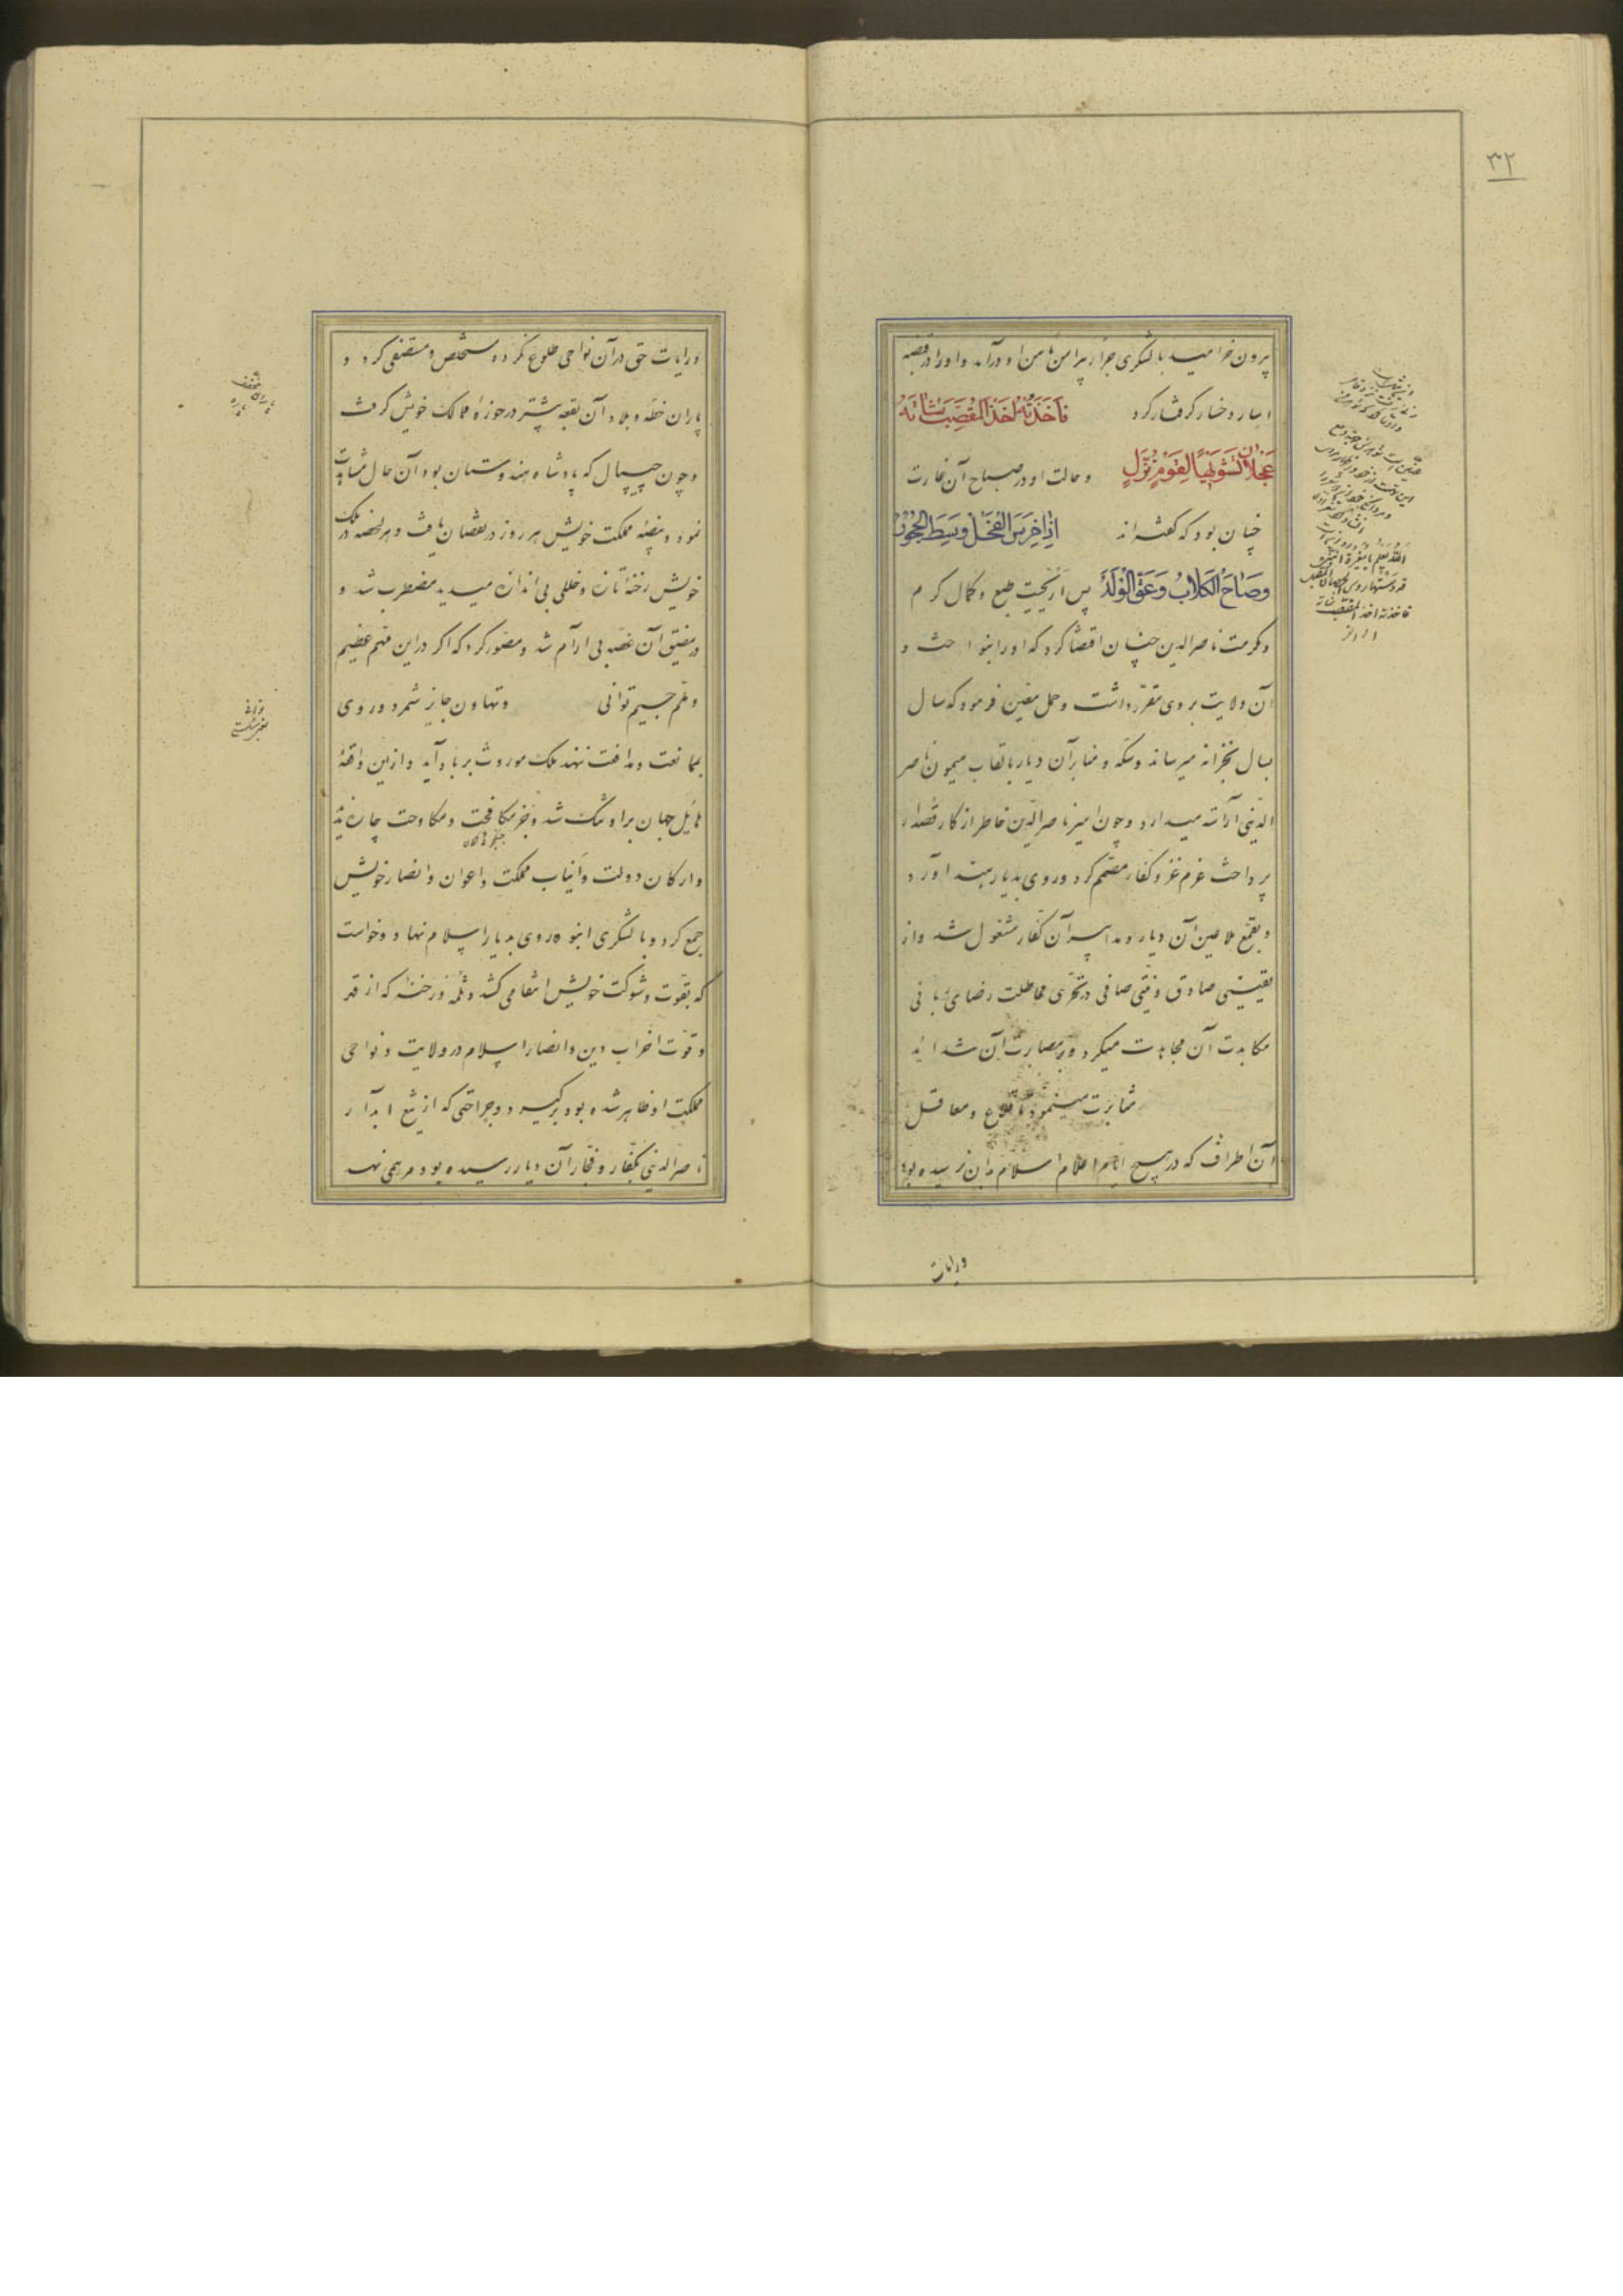 ۳۲
بیرون خرامید با لشکری جرار پیرامن مأمن او درآمد و او را در قبضه
اسار و خسار گرفتار کرد فَأَخَذَتْهُ اَخْذَ الْمُقَصِّبِ شَاتَهُ
عَجْلَانَ یَشْوِیهَا لِقَوْمٍ نُزَّلِ و حالت او در صباح آن غارت
چنان بود که گفته‌اند اِذَا خَرِسَ الْفَحْلُ وَسْطَ الْحُجُورِ
وَصَاحَ الْکِلَابُ وَعَقَّ الْوَلَدُ پس اریحیت طبع و کمال کرم
و مکرمت ناصرالدین چنان اقتضا کرد که او را بنواخت و
آن ولایت بر وی مقرر داشت و حمل معین فرمود که سال
بسال بخزانه میرساند و سکه و منابر آن دیار بالقاب میمون ناصر
الدینی آراسته میدارد و چون امیر ناصرالدین خاطر از کار قصدار
پرداخت عزم غزو کفار مصمم کرد و روی بدیار هند آورد
و بقمع ملاعین آن دیار و مدابیر آن کفار مشغول شد و از
یقینی صادق و نیتی صافی در تحری مماطلت رضای ربانی
مکابدت آن مجاهدت میکرد و بر مصابرت آن شداید
مثابرت مینمود تا قلاع و معاقل
آن اطراف که در هیچ ایام اعلام اسلام بدان نرسیده بود
ورایات
ورایات حق در آن نواحی طلوع نکرده مستخلص و مستصفی کرد و
یاران خطه و بلاد آن بقعه بیشتر در حوزه ممالک خویش گرفت
و چون جیپال که پادشاه هندوستان بود آن حال مشاهدت
نمود و بیضه مملکت خویش هر روز در نقصان یافت و هر لحظه در ملک
خویش رخنه تازه و خللی بی اندازه میدید مضطرب شد و
در مضیق آن غصه بی آرام شد و تصور کرد که اگر در این مهم عظیم
و ملم جسیم توانی و تهاون جایز شمرد و روی
بممانعت و مدافعت ننهد ملک موروث بر باد آید و ازین واقعه
هایل جهان بر او تنگ شد و بجز مکافحت و مکاوحت چاره ندید
و ارکان دولت و انیاب مملکت و اعوان و انصار خویش
جمع کرد و با لشکری انبوه روی بدیار اسلام نهاد و خواست
که بقوت و شوکت خویش انتقامی کشد و ثلمه و رخنه که از قدر
و قوت احزاب دین و انصار اسلام در ولایت و نواحی
مملکت او ظاهر شده بود برگیرد و جراحتی که از تیغ آبدار
ناصرالدینی بکفار و فجار آن دیار رسیده بود مرهمی نهد